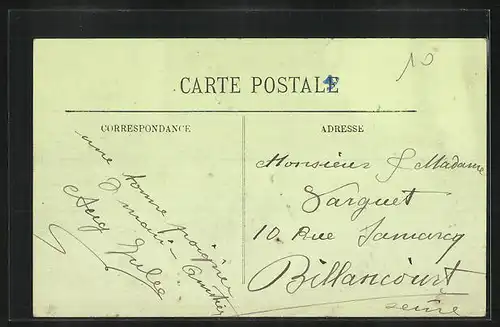 10
CARTE POSTALE
CORRESPONDANCE
ADRESSE
une bonne poignée
d main
Monsieur & Madame
Varguet
10 Rue Samarcq
Billancourt
Seine